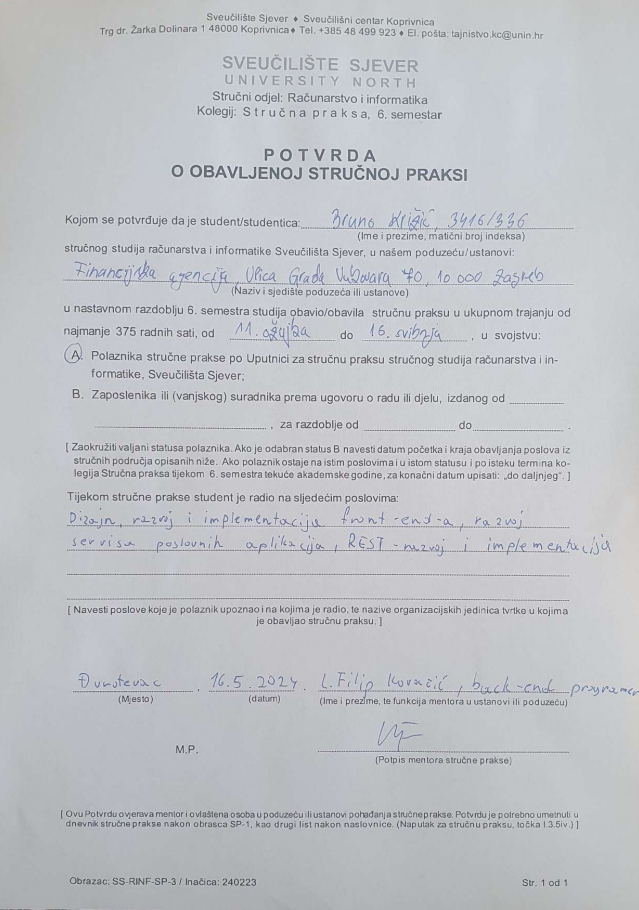 Sveučilište Sjever ♦ Sveučilišni centar Koprivnica
Trg dr. Žarka Dolinara 1 48000 Koprivnica♦ Tel. +385 48 499 923 ♦ El. pošta: tajnistvo.kc@unin.hr
SVEUČILIŠTE SJEVER
UNIVERSITY NORTH
Stručni odjel: Računarstvo i informatika
Kolegij: Stručna praksa, 6. semestar
POTVRDA
O OBAVLJENOJ STRUČNOJ PRAKSI
Kojom se potvrđuje da je student/studentica: Bruno Križić, 3416/336
(Ime i prezime, matični broj indeksa)
stručnog studija računarstva i informatike Sveučilišta Sjever, u našem poduzeću/ustanovi:
Financijska agencija, Ulica Grada Vukovara 70, 10 000 Zagreb
(Naziv i sjedište poduzeća ili ustanove)
u nastavnom razdoblju 6. semestra studija obavio/obavila stručnu praksu u ukupnom trajanju od
najmanje 375 radnih sati, od 11. ožujka do 16. svibnja, u svojstvu:
A. Polaznika stručne prakse po Uputnici za stručnu praksu stručnog studija računarstva i in-
formatike, Sveučilišta Sjever;
B. Zaposlenika ili (vanjskog) suradnika prema ugovoru o radu ili djelu, izdanog od
, za razdoblje od do .
[ Zaokružiti valjani statusa polaznika. Ako je odabran status B navesti datum početka i kraja obavljanja poslova iz
stručnih područja opisanih niže. Ako polaznik ostaje na istim poslovima i u istom statusu i po isteku termina ko-
legija Stručna praksa tijekom 6. semestra tekuće akademske godine, za konačni datum upisati: „do daljnjeg“. ]
Tijekom stručne prakse student je radio na sljedećim poslovima:
Dizajn, razvoj i implementacija front-end-a, razvoj
servisa poslovnih aplikacija, REST-razvoj i implementacija
[ Navesti poslove koje je polaznik upoznao i na kojima je radio, te nazive organizacijskih jedinica tvrtke u kojima
je obavljao stručnu praksu. ]
Đurđevac, 16.5.2024. Filip Kovačić, back-end programer
(Mjesto) (datum) (Ime i prezime, te funkcija mentora u ustanovi ili poduzeću)
M.P.
(Potpis mentora stručne prakse)
[ Ovu Potvrdu ovjerava mentor i ovlaštena osoba u poduzeću ili ustanovi pohađanja stručne prakse. Potvrdu je potrebno umetnuti u
dnevnik stručne prakse nakon obrasca SP-1, kao drugi list nakon naslovnice. (Naputak za stručnu praksu, točka I.3.5iv.) ]
Obrazac: SS-RINF-SP-3 / Inačica: 240223 Str. 1 od 1